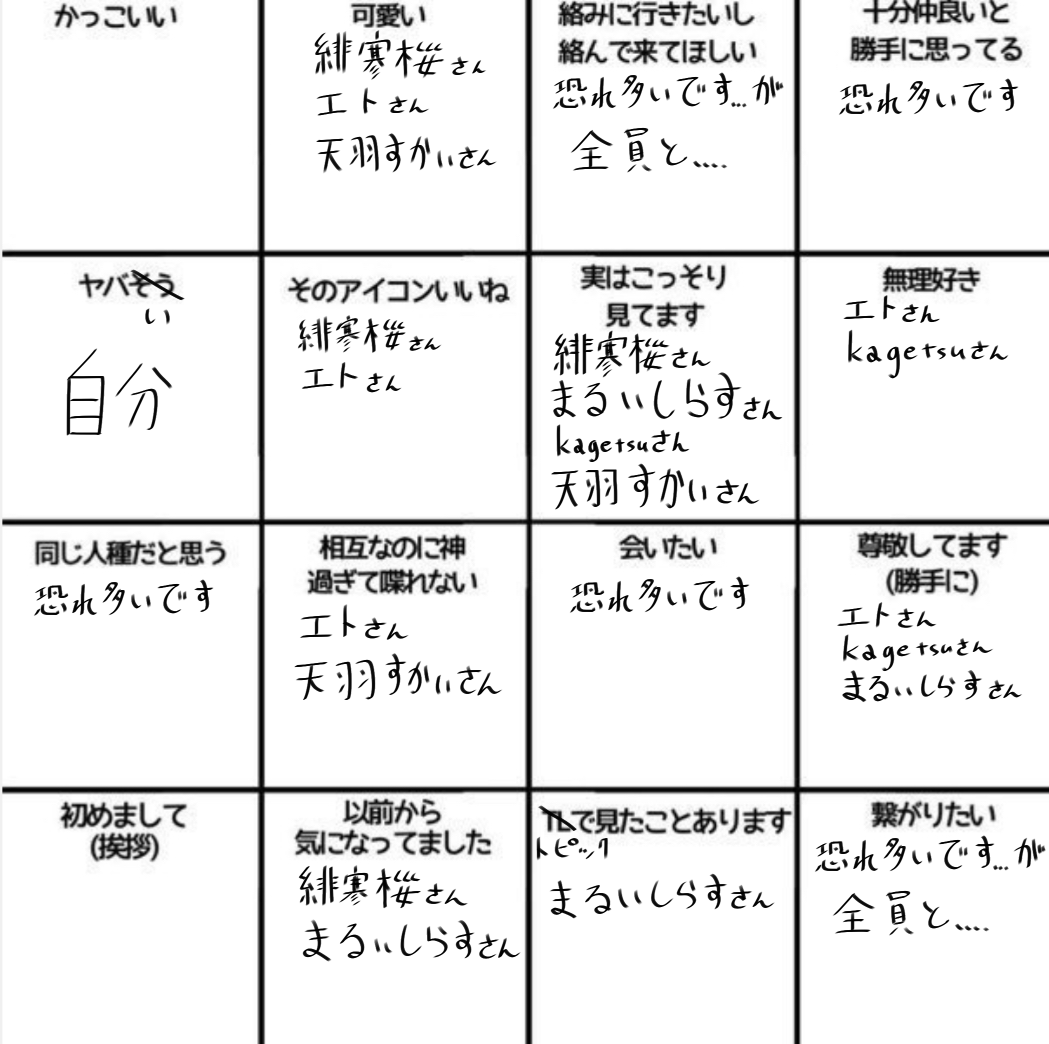 かっこいい
可愛い
緋寒桜さん
エトさん
天羽すかいさん
絡みに行きたいし
絡んで来てほしい
恐れ多いです...が
全員と....
十分仲良いと
勝手に思ってる
恐れ多いです
ヤバそう
い
自分
そのアイコンいいね
緋寒桜さん
エトさん
実はこっそり
見てます
緋寒桜さん
まるいしらすさん
kagetsuさん
天羽すかいさん
無理好き
エトさん
kagetsuさん
同じ人種だと思う
恐れ多いです
相互なのに神
過ぎて喋れない
エトさん
天羽すかいさん
会いたい
恐れ多いです
尊敬してます
(勝手に)
エトさん
kagetsuさん
まるいしらすさん
初めまして
(挨拶)
以前から
気になってました
緋寒桜さん
まるいしらすさん
TLで見たことあります
トピック
まるいしらすさん
繋がりたい
恐れ多いです...が
全員と....